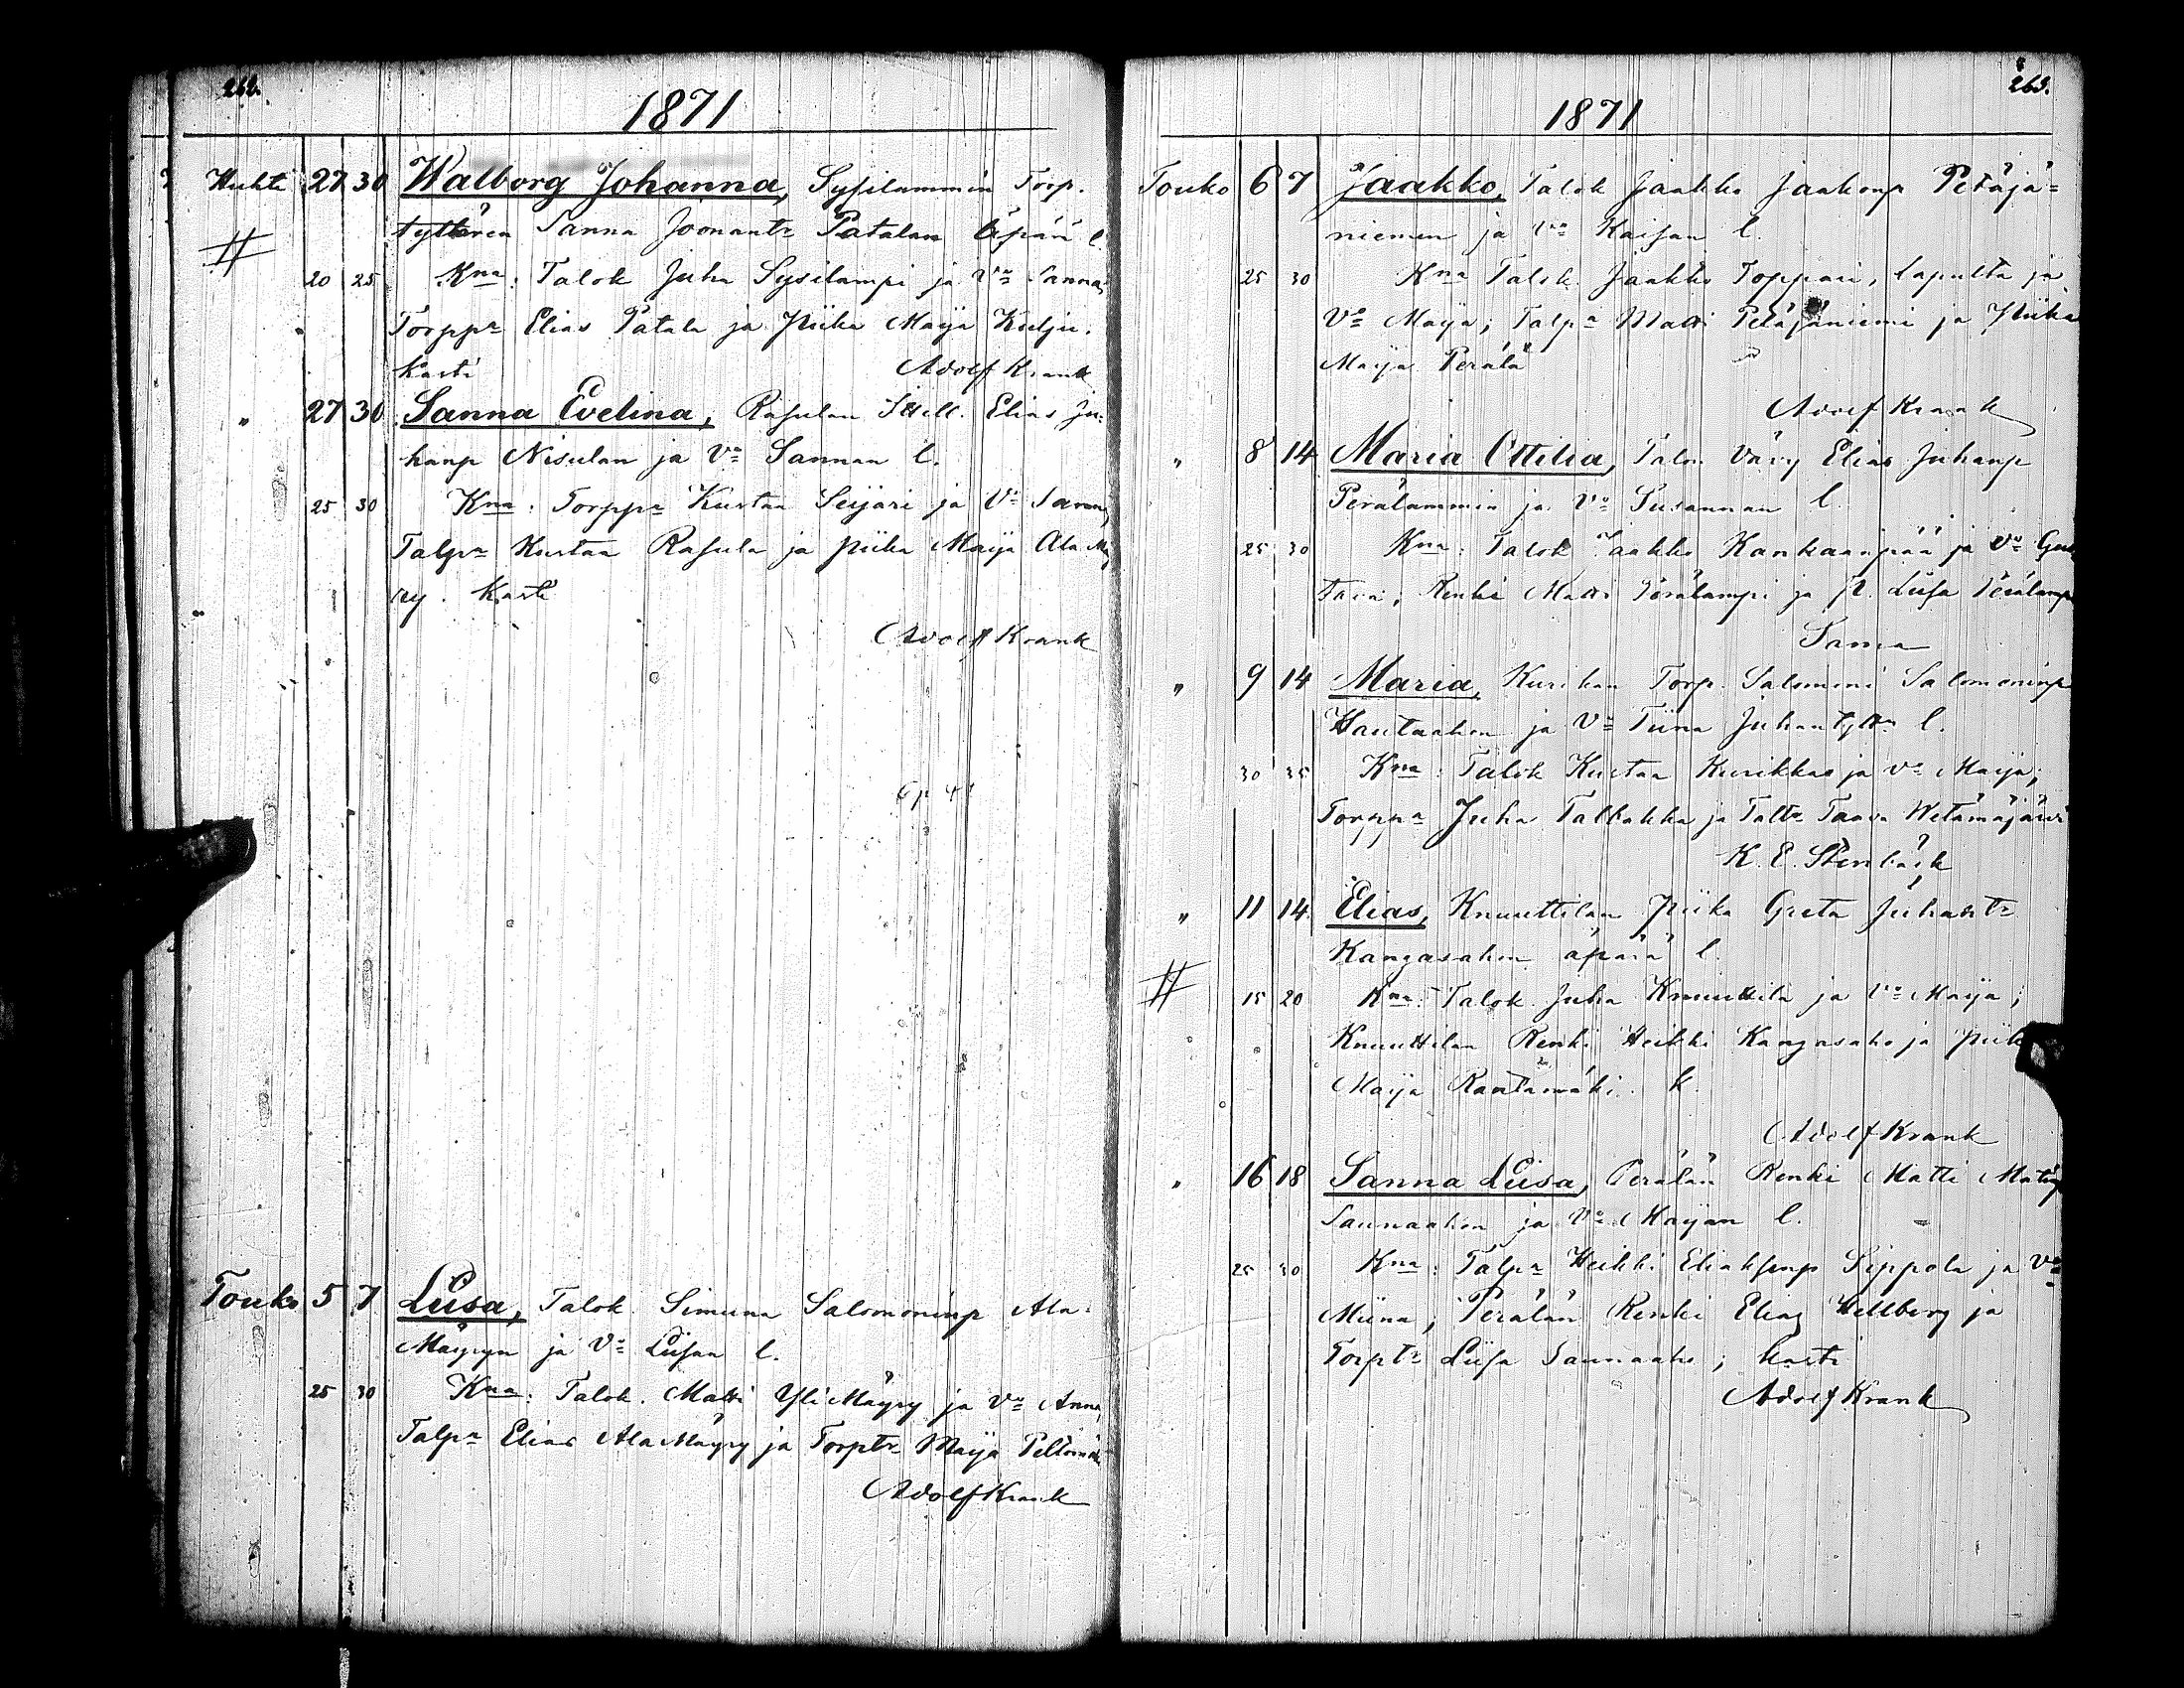 262.
1871
Huhti 27 30 Walborg Johanna, Sysilammin Torp.
tyttären Sanna Joonantr Patalan äpärä l.
20 25 Kna: Talok Juha Sysilampi ja Va Sanna;
Torppr Elias Patala ja Piika Maija Kulju.
kasti Adolf Krank
" 27 30 Sanna Evelina, Rasulan Elias Ju-
hanp Nisulan ja Va Sannan l.
25 30 Kna: Torppr Kustaa Seijari ja Va Sanna;
Talpr Kustaa Rasula ja piika Maija Ala Mä
ry. Kasti
Adolf Krank
Touko 5 7 Liisa, Talok. Simuna Salomoninp Ala-
Mäyryn ja Va Liisan l.
25 30 Kna: Talok. Matti YliMäyry ja Va Anna,
Talpr Elias AlaMäyry ja Torptr Maija Peltomäki
Adolf Krank
263.
1871
Touko 6 7 Jaakko, Talok Jaakko Jaakonp Petäjä-
niemen ja Va Kaisan l.
25 30 Kna Talok. Jaakko Toppari, Lapulta ja
Va Maija; Talpr Matti Petäjäniemi ja Piika
Maija Perälä
Adolf Krank
" 8 14 Maria Ottilia, Talon Vävy Elias Juhanp
Perälammin ja Va Susannan l.
25 30 Kna: Talok Jaakko Kankaanpää ja Va Gus
tava, Renki Matti Perälampi ja p. Liisa Perälampi
Sama
" 9 14 Maria, Kurikan Torp. Salomoni Salomoninp
Hautaahon ja Va Tiina Juhantytt. l.
30 35 Kna: Talok Kustaa Kurikka ja va Maija;
Torppr Juha Talbakka ja Taltr Taava Wetämäjärvi
K. E. Stenbäck
" 11 14 Elias, Knuuttilan piika Greta Juhantr
Kangasahon äpärä l.
15 20 Kna: Talok. Juha Knuuttila ja Va Maija;
Knuuttilan Renki Heikki Kangasaho ja piik
Maija Rantamäki. k.
Adolf Krank
" 16 18 Sanna Liisa, Perälän Renki Matti Matinp
Saunaahon ja Va Maijan l.
25 30 Kna: Talpr Heikki Eliaksenp Sippola ja Va
Miina; Perälän Renki Elias Hellberg ja
Torptr Liisa Saunaaho; kasti
Adolf Krank